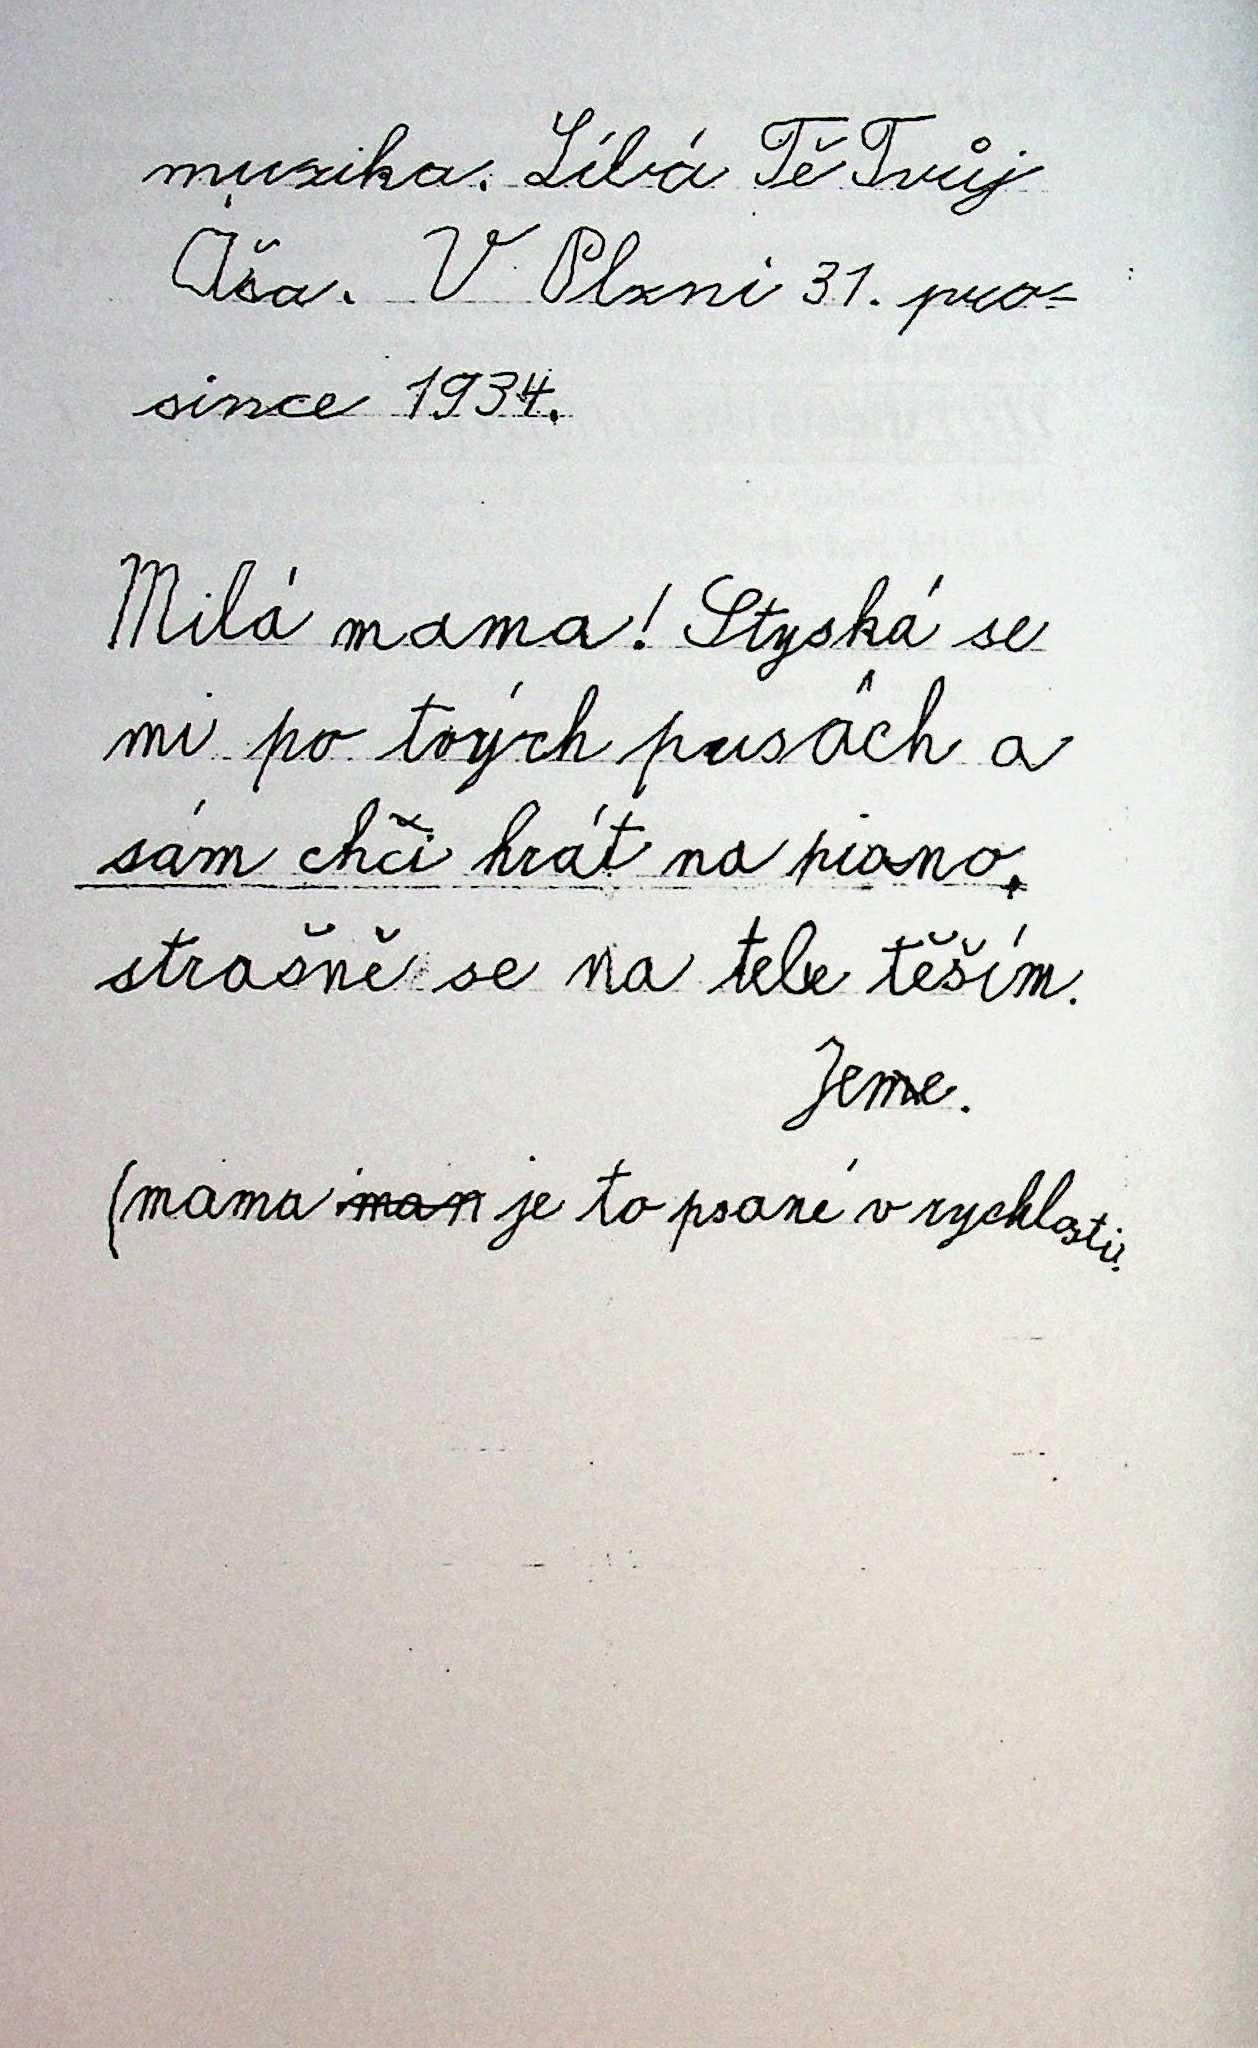 muzika. Líbá Tě Tvůj
Áša. V Plzni 31. pro=
since 1934.
Milá mama! Styská se
mi po tvých pusách a
sám chči hrát na piano.
strašně se na tebe těším.
Jeme.
(mama man je to psané v rychlosti.